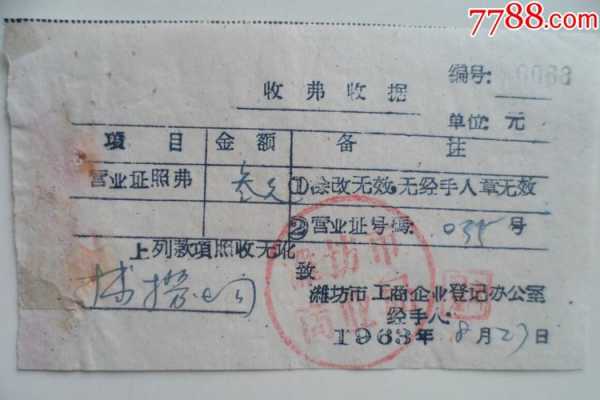 7788.com
编号:
收弗收据
单位: 元
項目 金额 备註
营业证照弗 叁元 ①涂改无效,无经手人章无效
②营业证号碼: 035 号
上列款項照收无讹
致
潍坊市工商企业登记办公室
经手人:
1963年 8月27日